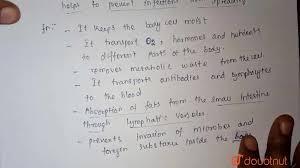 helps to prevent infections and spreading
fn:- - It keeps the body cell moist
- It transport O2, hormones and nutrient
to different parts of the body.
- removes metabolic waste from the cell
- It transports antibodies and lymphocytes
to the blood
- Absorption of fats from the small intestine
through lymphatic vessels
- prevents invasion of microbes and
foreign substance inside the body
doubtnut